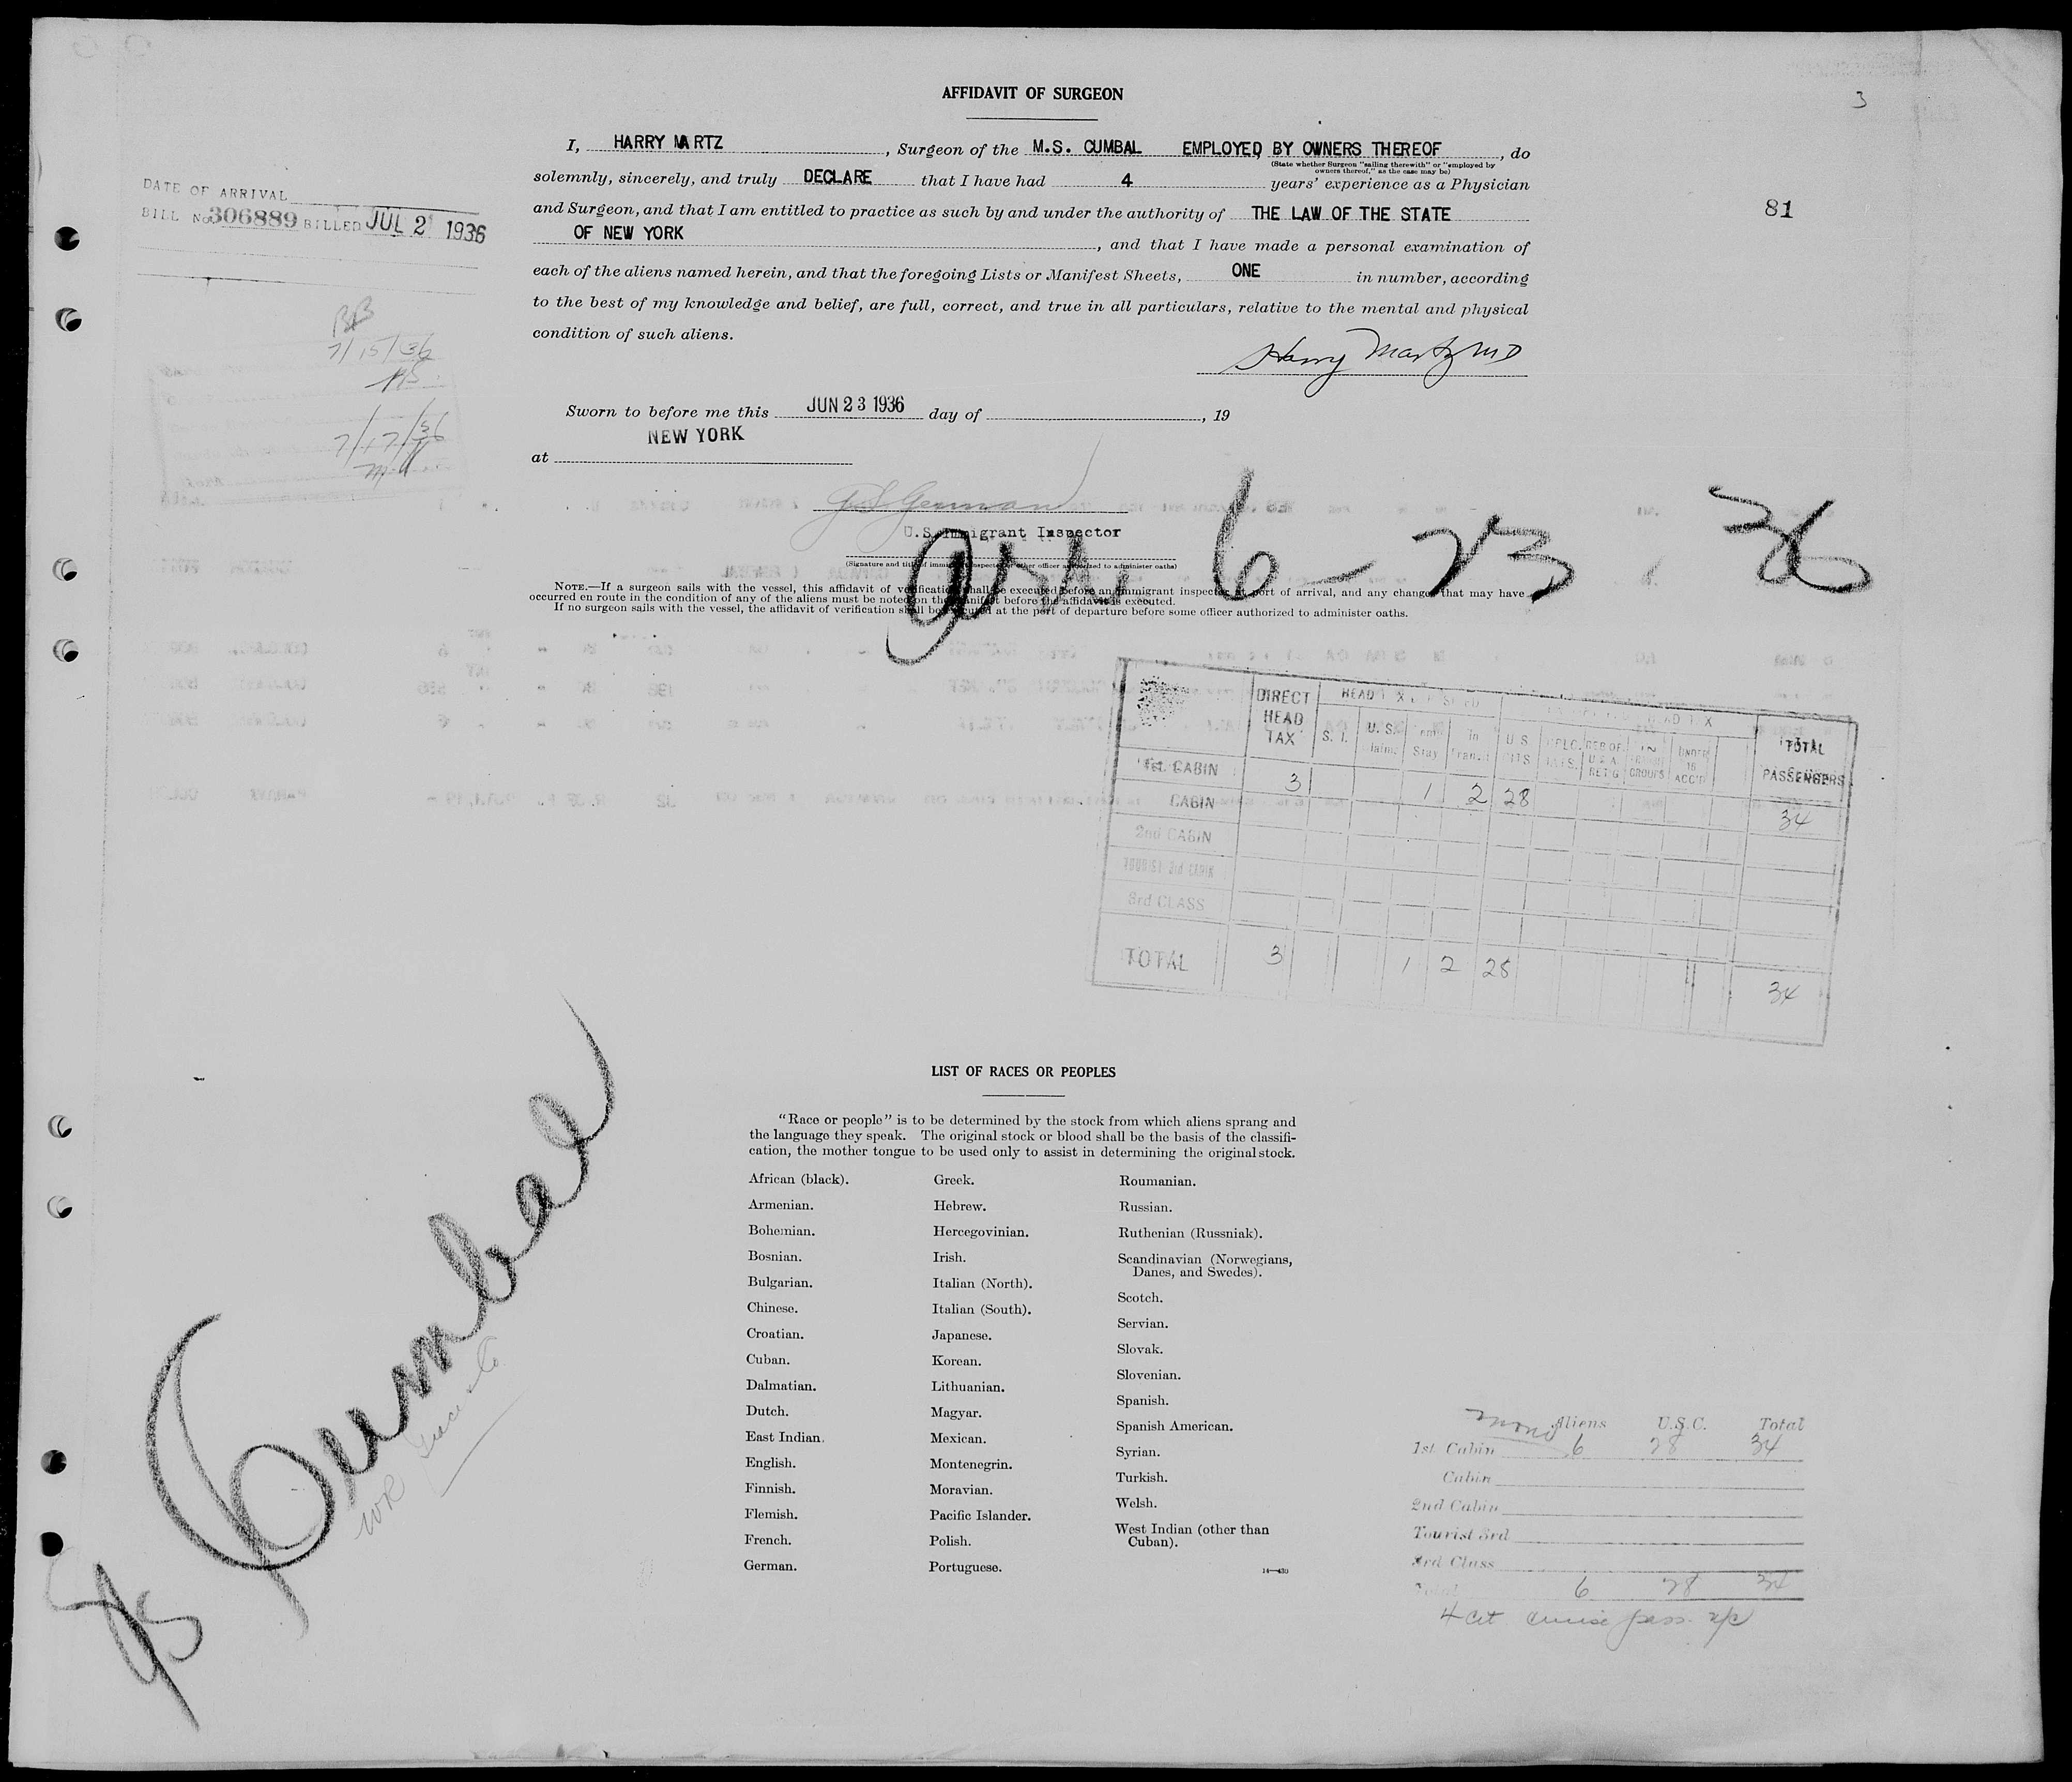 AFFIDAVIT OF SURGEON
3
I, HARRY MARTZ, Surgeon of the M.S. CUMBAL EMPLOYED BY OWNERS THEREOF, do
(State whether Surgeon "sailing therewith" or "employed by
owners thereof," as the case may be)
solemnly, sincerely, and truly DECLARE that I have had 4 years' experience as a Physician
and Surgeon, and that I am entitled to practice as such by and under the authority of THE LAW OF THE STATE
OF NEW YORK, and that I have made a personal examination of
each of the aliens named herein, and that the foregoing Lists or Manifest Sheets, ONE in number, according
to the best of my knowledge and belief, are full, correct, and true in all particulars, relative to the mental and physical
condition of such aliens.
Harry Martz MD
DATE OF ARRIVAL
BILL No 306889 BILLED JUL 2 1936
81
7/15/36
7/17/36
Sworn to before me this JUN 23 1936 day of , 19
NEW YORK
at
G S German
U.S. Immigrant Inspector
(Signature and title of immigrant inspector or other officer authorized to administer oaths)
Arr. 6-23 36
NOTE.—If a surgeon sails with the vessel, this affidavit of verification shall be executed before an immigrant inspector at port of arrival, and any changes that may have
occurred en route in the condition of any of the aliens must be noted on the manifest before the affidavit is executed.
If no surgeon sails with the vessel, the affidavit of verification shall be executed at the port of departure before some officer authorized to administer oaths.
DIRECT HEAD TAX
S. I.
U. S.
In Transit
U S CITS
UNDER 16 ACC'D
TOTAL PASSENGERS
1st. CABIN 3 1 2 28 34
CABIN
2nd CABIN
TOURIST 3rd CABIN
3rd CLASS
TOTAL 3 1 2 28 34
LIST OF RACES OR PEOPLES
"Race or people" is to be determined by the stock from which aliens sprang and
the language they speak. The original stock or blood shall be the basis of the classifi-
cation, the mother tongue to be used only to assist in determining the original stock.
African (black).
Armenian.
Bohemian.
Bosnian.
Bulgarian.
Chinese.
Croatian.
Cuban.
Dalmatian.
Dutch.
East Indian.
English.
Finnish.
Flemish.
French.
German.
Greek.
Hebrew.
Hercegovinian.
Irish.
Italian (North).
Italian (South).
Japanese.
Korean.
Lithuanian.
Magyar.
Mexican.
Montenegrin.
Moravian.
Pacific Islander.
Polish.
Portuguese.
Roumanian.
Russian.
Ruthenian (Russniak).
Scandinavian (Norwegians,
Danes, and Swedes).
Scotch.
Servian.
Slovak.
Slovenian.
Spanish.
Spanish American.
Syrian.
Turkish.
Welsh.
West Indian (other than
Cuban).
Cumbal
Aliens U.S.C. Total
1st. Cabin 6 28 34
Cabin
2nd Cabin
Tourist 3rd
3rd Class
Total 6 28 34
4 cit cruise pass.